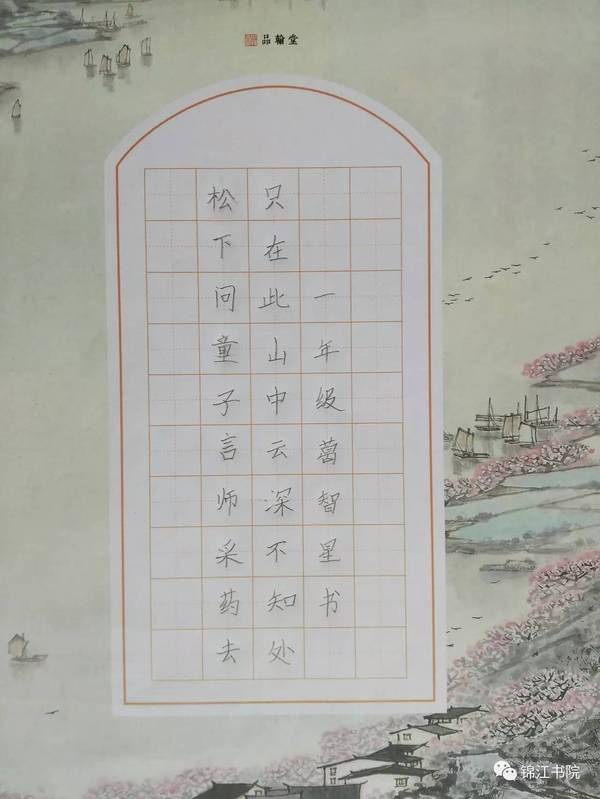 品翰堂
松下问童子言师采药去
只在此山中云深不知处
一年级葛智星书
锦江书院